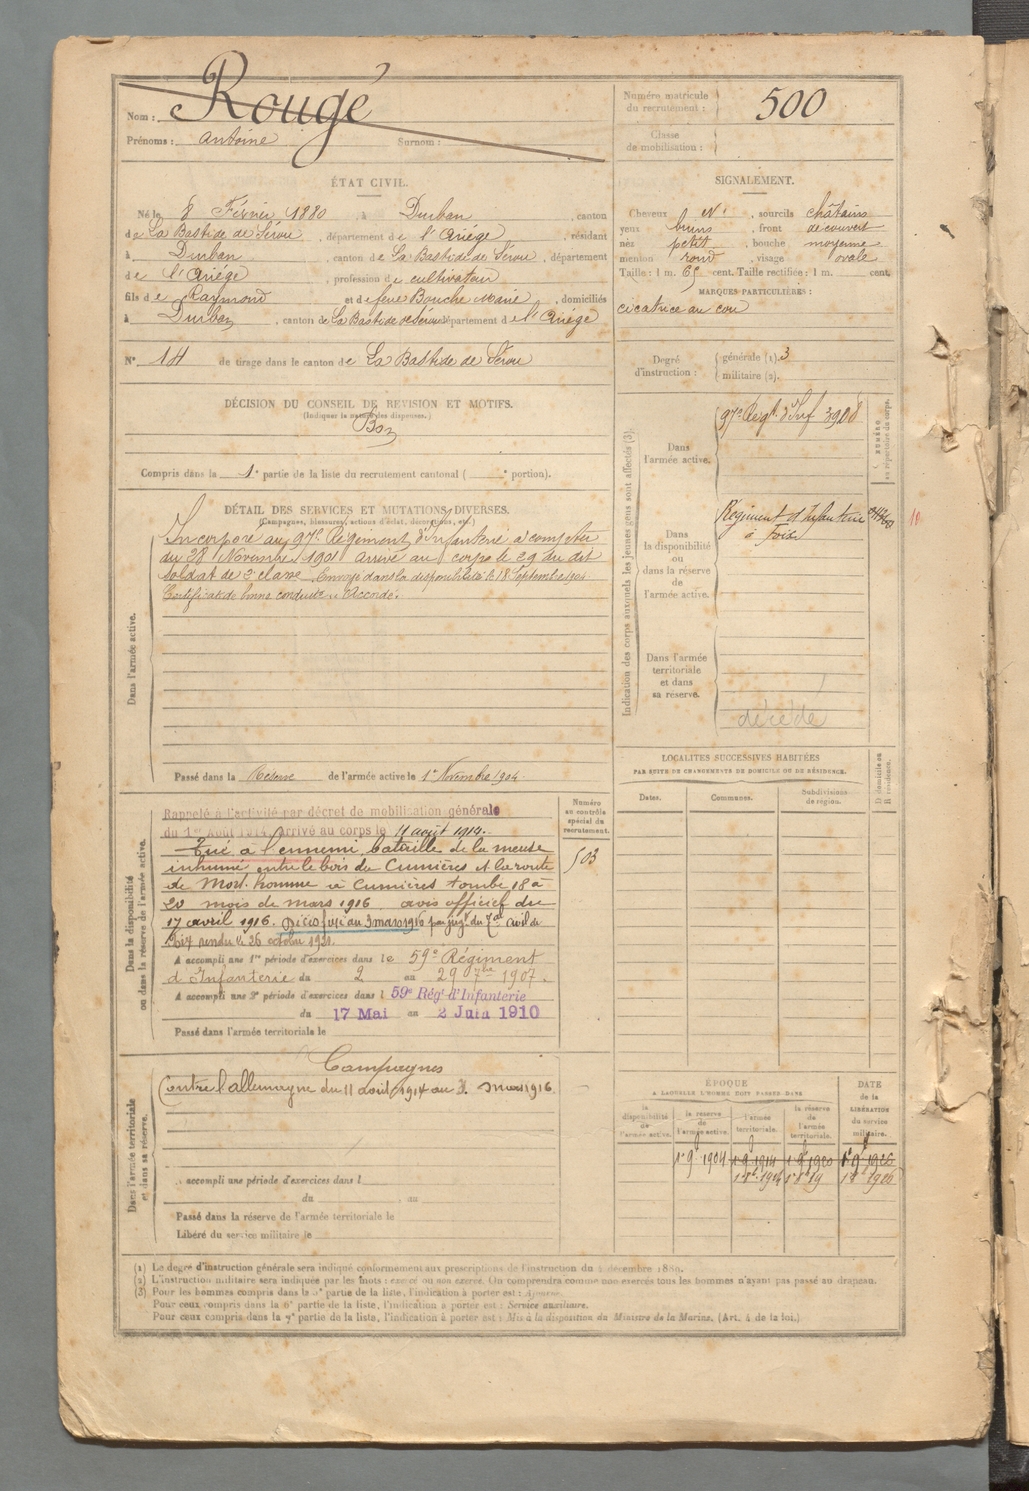 Nom : Rougé
Prénoms : Antoine Surnom :
Numéro matricule du recrutement : 500
Classe de mobilisation :
ÉTAT CIVIL.
Né le 8 Février 1880, à Durban, canton
de La Bastide de Sérou, département de l'Ariège, résidant
à Durban, canton de La Bastide de Sérou, département
de l'Ariège, profession de cultivateur
fils de Raymond et de feue Bouche Marie, domiciliés
à Durban, canton de La Bastide de Sérou département de l'Ariège
N° 14 de tirage dans le canton de La Bastide de Sérou
SIGNALEMENT.
Cheveux Nr, sourcils châtains
yeux bruns, front découvert
nez petit, bouche moyenne
menton rond, visage ovale
Taille : 1 m. 65 cent. Taille rectifiée : 1 m. cent.
MARQUES PARTICULIÈRES :
cicatrice au cou
Degré d'instruction : générale (1). 3
militaire (2).
DÉCISION DU CONSEIL DE REVISION ET MOTIFS.
(Indiquer la nature des dispenses.)
Bon
Compris dans la 1e partie de la liste du recrutement cantonal ( e portion).
DÉTAIL DES SERVICES ET MUTATIONS DIVERSES.
(Campagnes, blessures, actions d'éclat, décorations, etc.)
Dans l'armée active.
Incorporé au 97e Régiment d'Infanterie à compter
du 28 Novembre 1901 arrivé au corps le 29 du dit
soldat de 2e classe. Envoyé dans la disponibilité le 18 Septembre 1904.
Certificat de bonne conduite « Accordé ».
Passé dans la Réserve de l'armée active le 1er Novembre 1904.
Indication des corps auxquels les jeunes gens sont affectés (3).
NUMÉRO au répertoire du corps.
Dans l'armée active.
97e Régt. d'Inf 3908
Dans la disponibilité ou dans la réserve de l'armée active.
Régiment d'Infanterie
à Foix
Dans l'armée territoriale et dans sa réserve.
décédé
LOCALITÉS SUCCESSIVES HABITÉES
PAR SUITE DE CHANGEMENTS DE DOMICILE OU DE RÉSIDENCE.
Dates.
Communes.
Subdivisions de région.
D domicile ou R résidence.
Dans la disponibilité ou dans la réserve de l'armée active.
Numéro au contrôle spécial du recrutement.
503
Rappelé à l'activité par décret de mobilisation générale
du 1er Août 1914, arrivé au corps le 11 août 1914.
Tué à l'ennemi, bataille de la meuse
inhumé entre le bois de Cumières et la route
de Mort homme à Cumières tombe 18 a
20 mois de mars 1916 avis officiel du
17 avril 1916. Décès fixé au 3 mars 1916 par jugt. du
Foix rendu le 26 octobre 1921.
A accompli une 1re période d'exercices dans le 59e Régiment
d'Infanterie du 2 au 29 7bre 1907.
A accompli une 2e période d'exercices dans l 59e Régt d'Infanterie
du 17 Mai au 2 Juin 1910
Passé dans l'armée territoriale le
Dans l'armée territoriale et dans sa réserve.
Campagnes
Contre l'allemagne du 11 août 1914 au 3 mars 1916.
accompli une période d'exercices dans l
du au
Passé dans la réserve de l'armée territoriale le
Libéré du service militaire le
ÉPOQUE
A LAQUELLE L'HOMME DOIT PASSER DANS
la disponibilité de l'armée active.
la réserve de l'armée active.
l'armée territoriale.
la réserve de l'armée territoriale.
DATE de la LIBÉRATION du service militaire.
(1) Le degré d'instruction générale sera indiqué conformément aux prescriptions de l'instruction du 4 décembre 1889.
(2) L'instruction militaire sera indiquée par les mots : exercé ou non exercé. On comprendra comme non exercés tous les hommes n'ayant pas passé au drapeau.
(3) Pour les hommes compris dans la 2e partie de la liste, l'indication à porter est : Ajourné.
Pour ceux compris dans la 6e partie de la liste, l'indication à porter est : Service auxiliaire.
Pour ceux compris dans la 7e partie de la liste, l'indication à porter est : Mis à la disposition du Ministre de la Marine. (Art. 4 de la loi.)